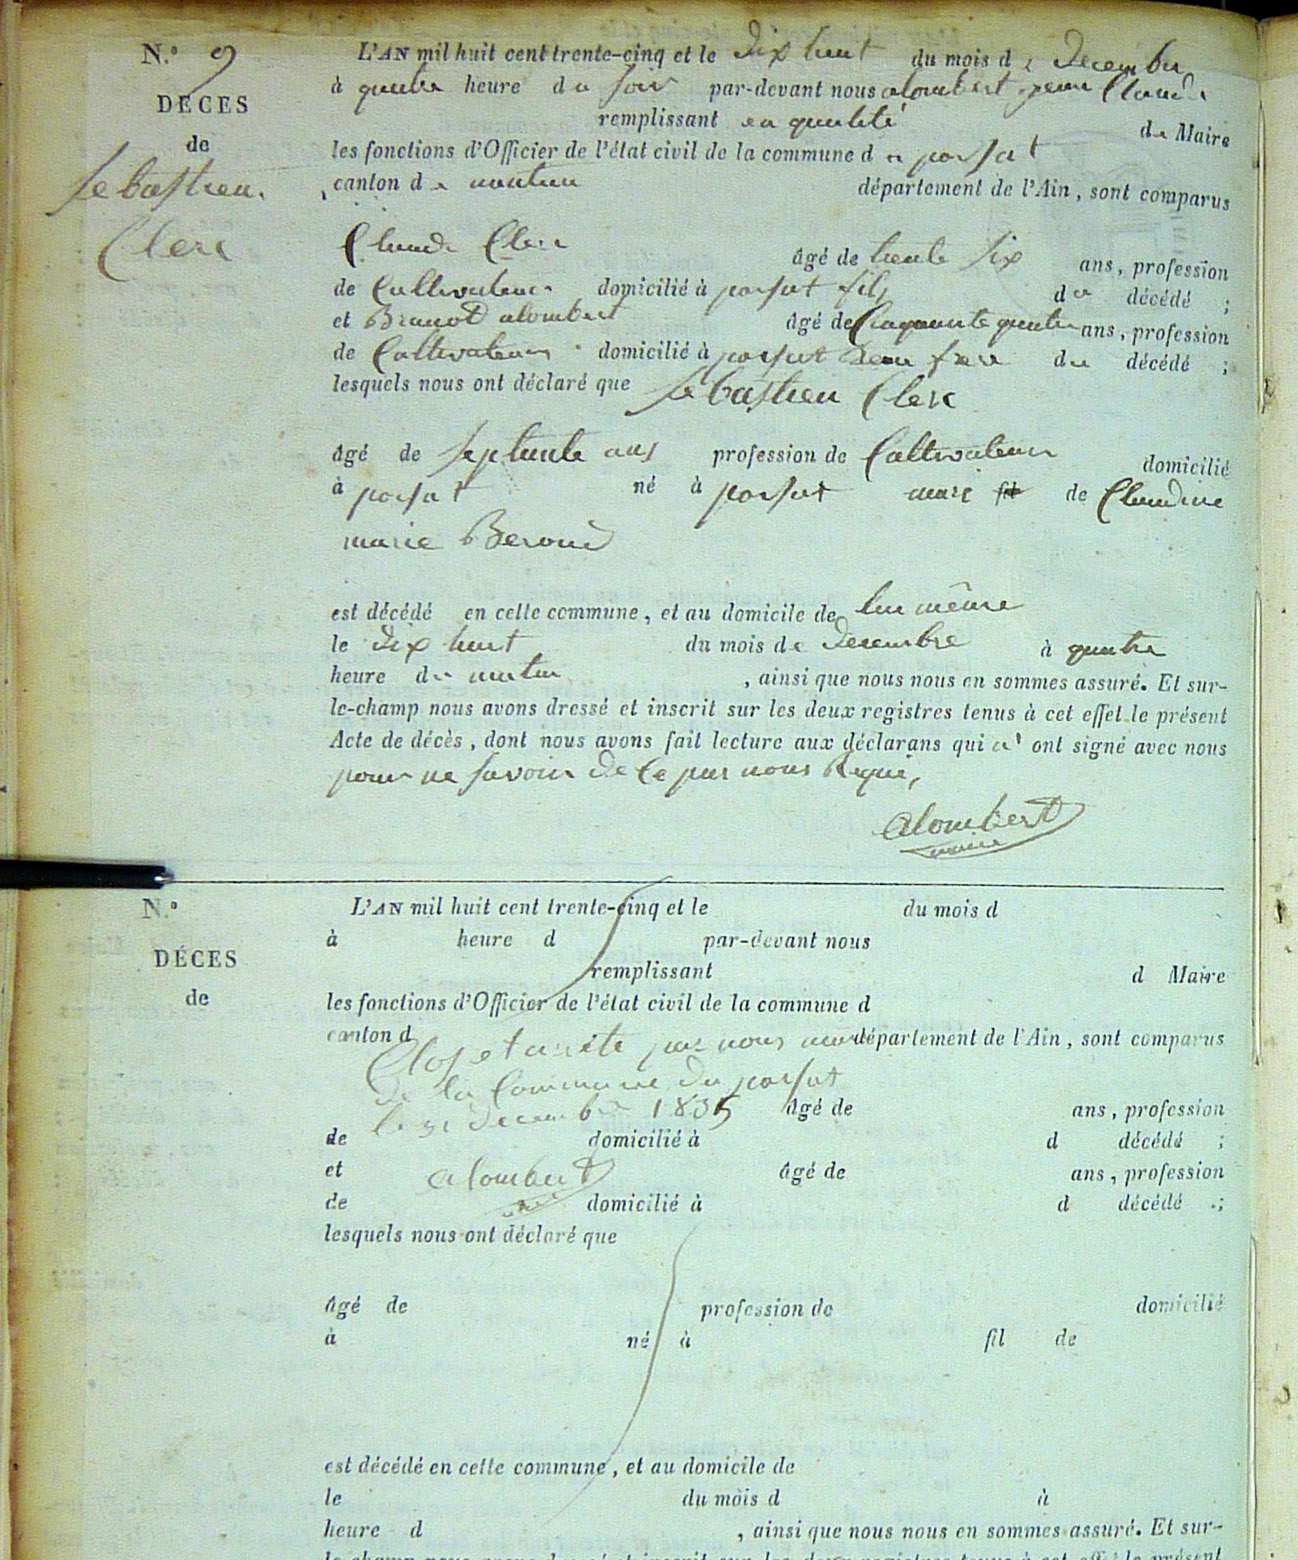 N.° 9
DÉCES
de
Sebastien
Clerc
L'AN mil huit cent trente-cinq et le dix huit du mois de decembre
à quatre heure du soir par-devant nous alombert jean Claude
remplissant en qualité de Maire
les fonctions d'Officier de l'état civil de la commune de porsat
canton de département de l'Ain, sont comparus
Claude Clerc âgé de trente six ans, profession
de Cultivateur domicilié à porsat fils du décédé ;
et Benoit alombert âgé de Cinquante quatre ans, profession
de Cultivateur domicilié à porsat beau frere du décédé ;
lesquels nous ont déclaré que sebastien Clerc
âgé de septante ans profession de Cultivateur domicilié
à porsat né à porsat mari fil de Claudine
marie Beroud
est décédé en cette commune, et au domicile de lui même
le dix huit du mois de decembre à quatre
heure du matin , ainsi que nous nous en sommes assuré. Et sur-
le-champ nous avons dressé et inscrit sur les deux registres tenus à cet effet le présent
Acte de décès, dont nous avons fait lecture aux déclarans qui n' ont signé avec nous
pour ne savoir de Ce par nous Requi,
alombert
maire
N.°
DÉCES
de
L'AN mil huit cent trente-cinq et le du mois d
à heure d par-devant nous
remplissant d Maire
les fonctions d'Officier de l'état civil de la commune d
canton d département de l'Ain, sont comparus
Clos et arrêté par nous maire
de la Commune du porsat
le 31 decembre 1835 âgé de ans, profession
de domicilié à d décédé ;
et alombert âgé de ans, profession
de domicilié à d décédé ;
lesquels nous ont déclaré que
âgé de profession de domicilié
à né à fil de
est décédé en cette commune, et au domicile de
le du mois d à
heure d , ainsi que nous nous en sommes assuré. Et sur-
le-champ nous avons dressé et inscrit sur les deux registres tenus à cet effet le présent